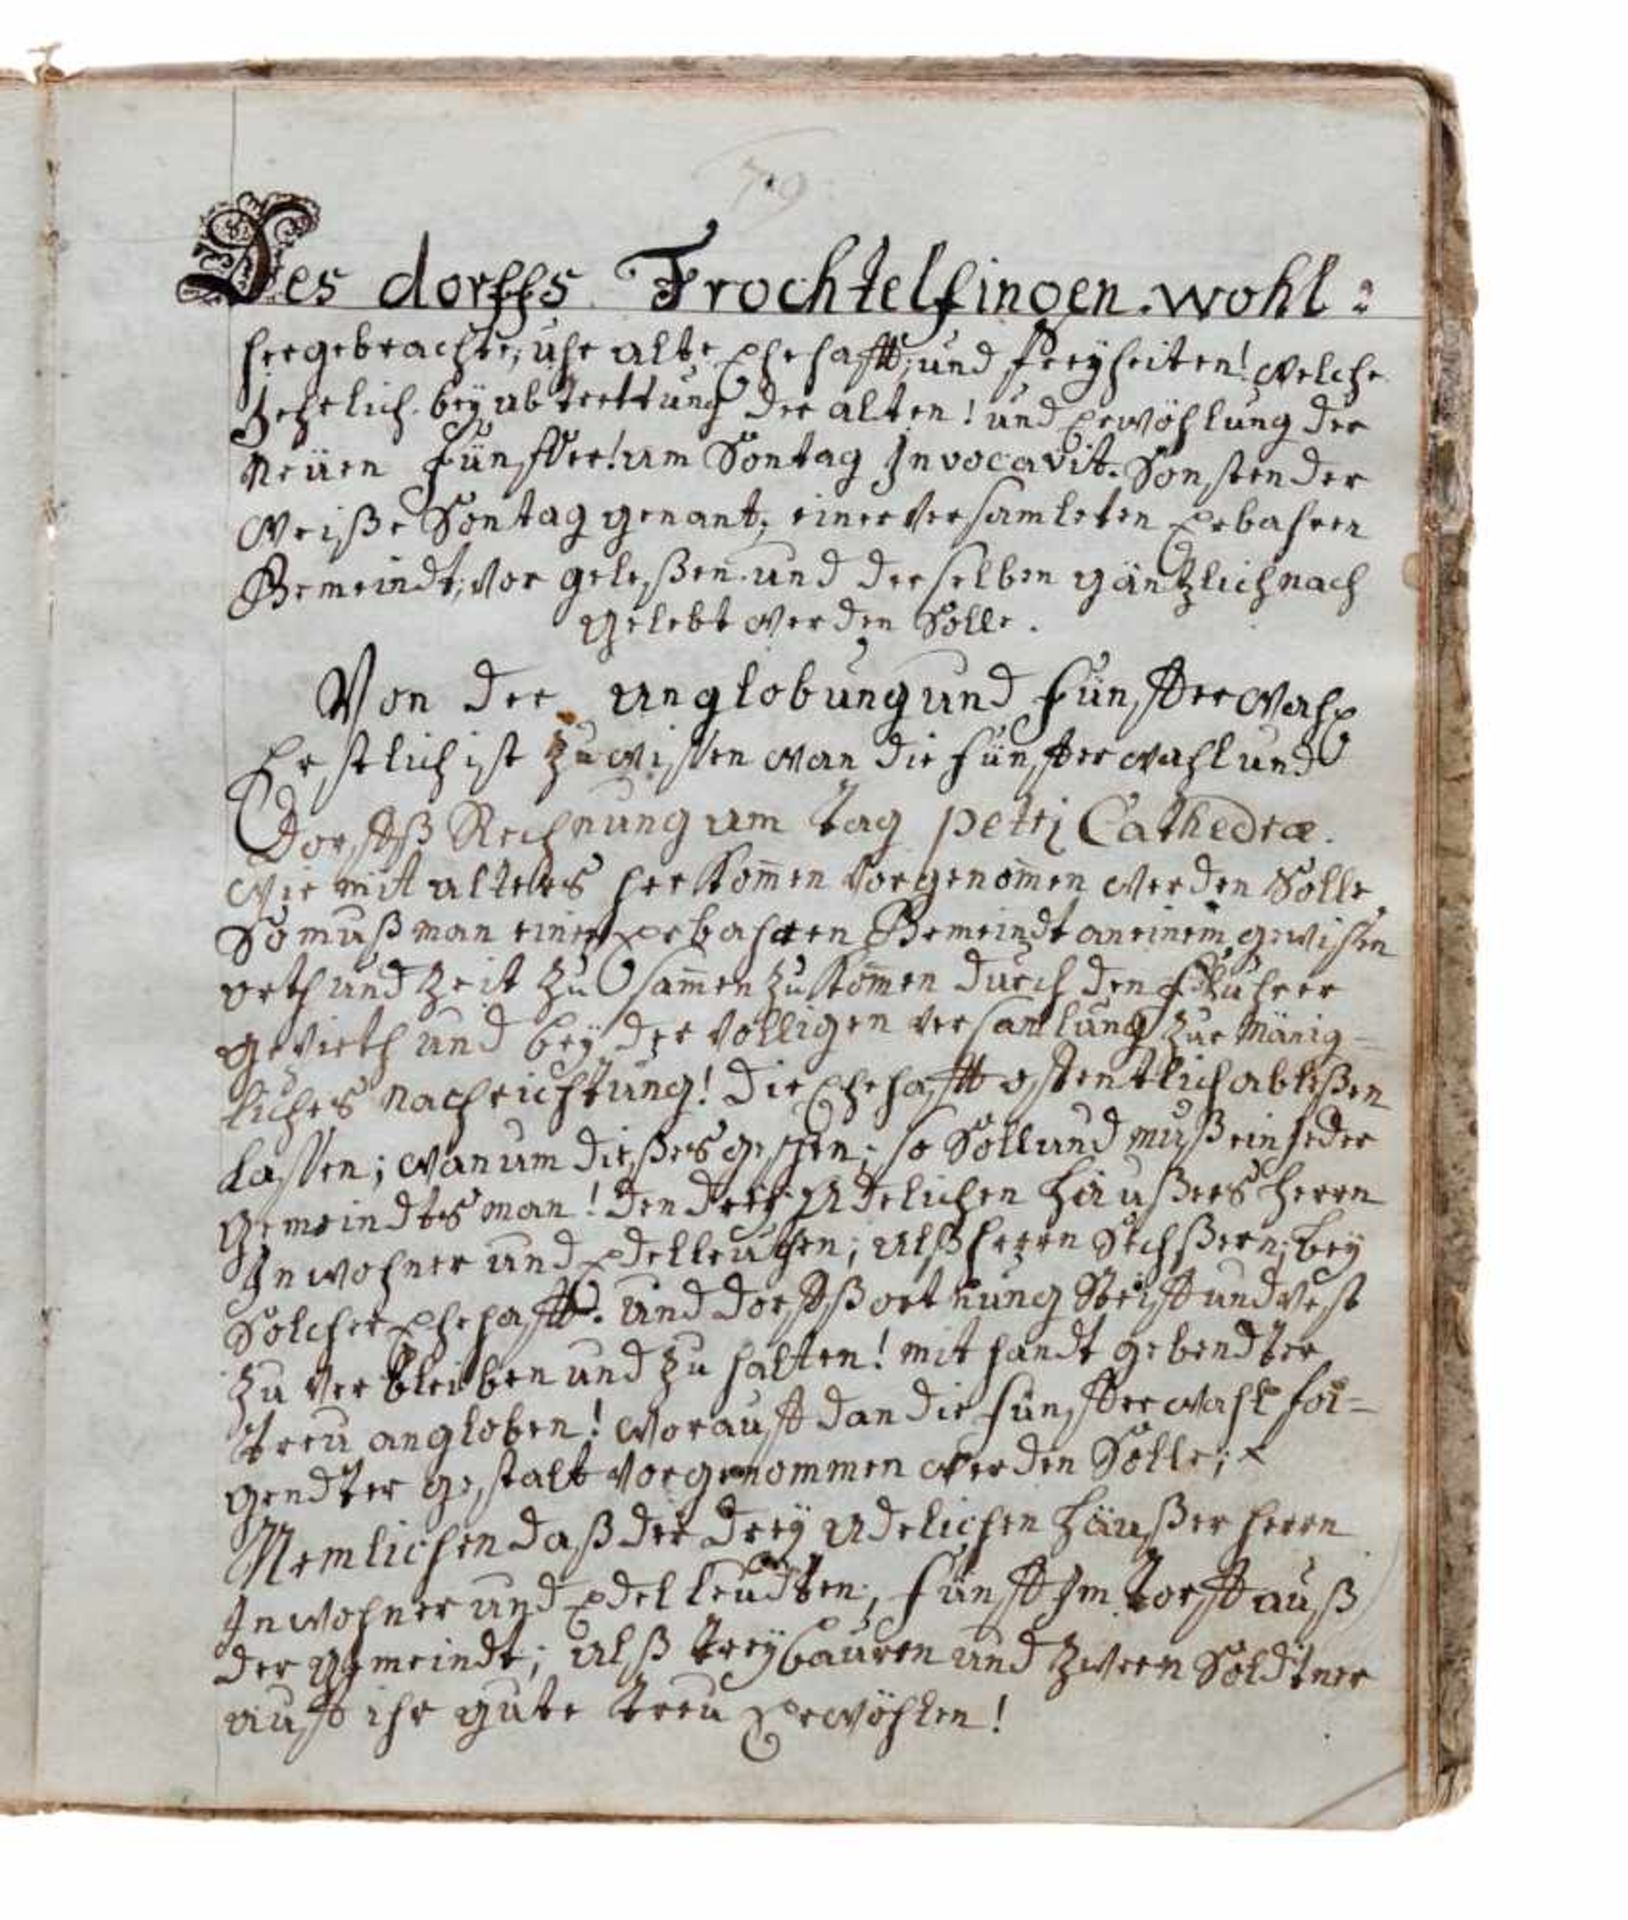 79
Des dorffs Trochtelfingen wohl:
hergebrachte, uhr alte Ehehafft, und freyheiten! welche
Jehrlich bey abtrettung der alten! und Erwöhlung der
neüen Fünffer! am Sontag Invocavit. Sonsten der
Weiße Sontag genant, einer versamleten Erbahren
Gemeindt, vor geleßen und derselben gäntzlich nach
gelebt werden Solle.
Von der anglobung und Fünffer wahl
Erstlich ist zu wissen wan die fünffer wahl und
Dorffß Rechnung am Tag petri Cathedræ.
wie mit alters herkom̄en vorgenom̄en werden Solle
So muß man einer Erbahren Gemeindt an einem gewisen
orth und zeit zu sam̄en zu kom̄en durch den
und bey der völligen versamlung zur mänig-
liches nachrichtung! die Ehehafft offentlich ableßen
lassen; wan um dießes geschen; so Soll und muß ein jeder
gemeindts man! den drey Adelichen häußers herrn
Inwohner und Edelleuthen; alß herrn Sechßern; bey
Solcher Ehehafft. und dorffß ortnung Steiff und vest
zu verbleiben und zu halten! mit handt gebendter
treu angloben! worauff dan die fünffer wahl fol-
gendter gestalt vorgenommen werden Solle;
Nemlichen daß der drey Adelichen häußer herrn
Inwohner und Edelleudten, fünff Im torff auß
der gemeindt; alß trey bauren und zween Söldtner
auff ihr gute treu Erwöhlen!